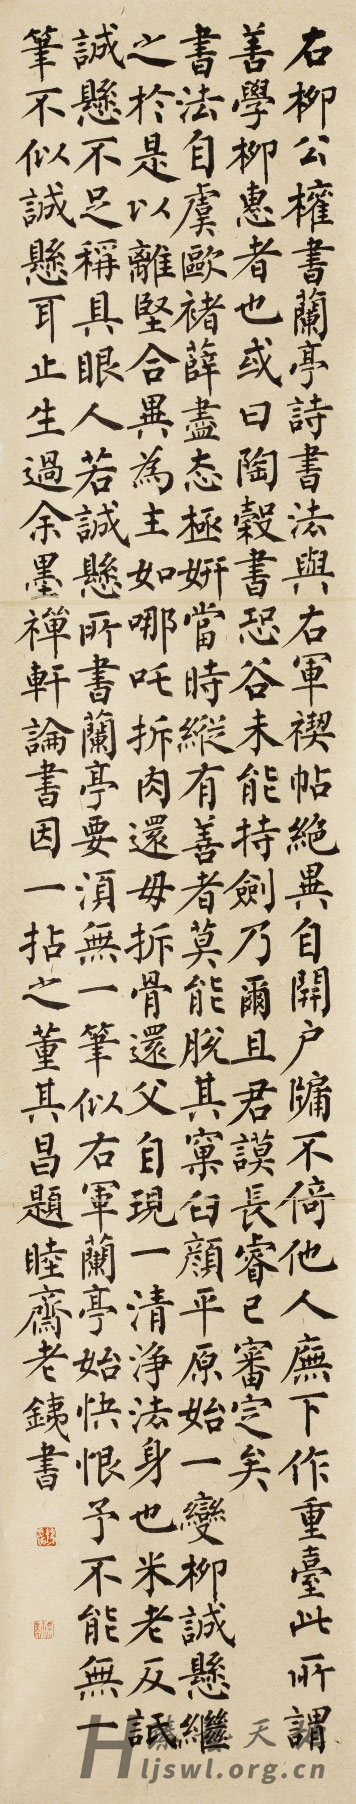 右柳公權書蘭亭詩書法與右軍禊帖絕異自開户牖不倚他人廡下作重臺此所謂
善學柳惠者也或曰陶穀書恐谷未能持劍乃爾且君謨長睿已審定矣
書法自虞歐褚薛盡态極妍當時縱有善者莫能脫其窠臼顏平原始一變柳誠懸繼
之於是以離堅合異為主如哪吒拆肉還母拆骨還父自現一清淨法身也米老反詆
誠懸不足稱具眼人若誠懸所書蘭亭要湏無一筆似右軍蘭亭始快恨予不能無一
筆不似誠懸耳止生過余墨禪軒論書因一拈之董其昌題睦齋老銕書
Hljswl.org.cn